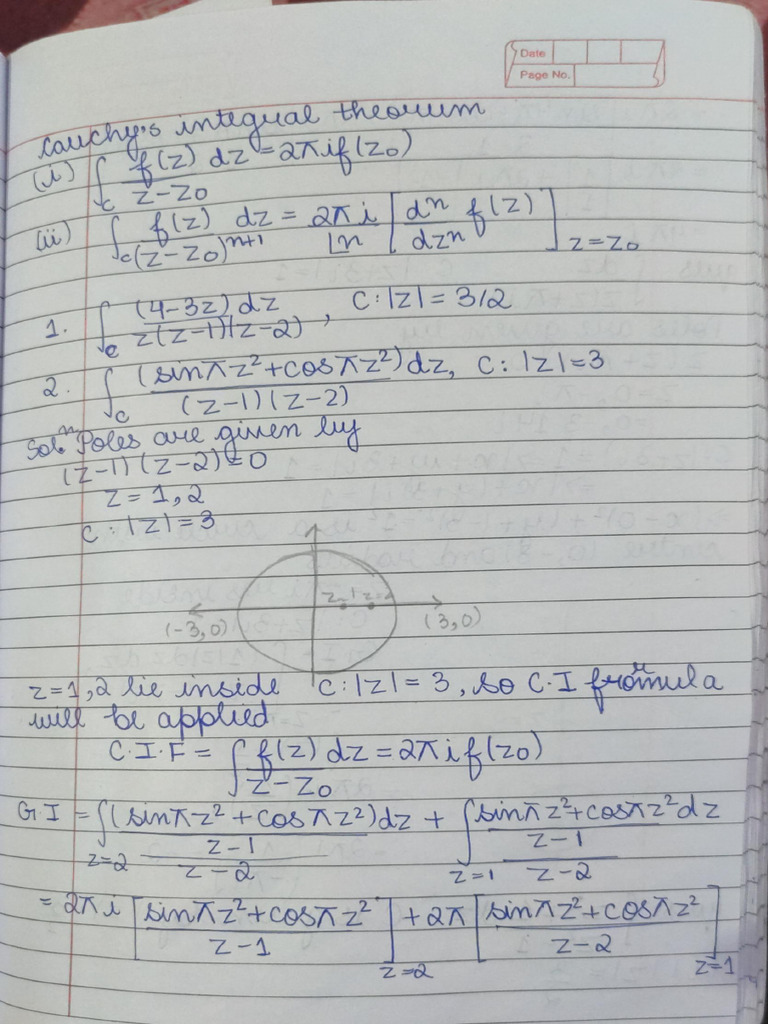 Date
Page No.
Cauchy's integral theorum
(i) ∫_C f(z)/(z-z0) dz = 2πi f(z0)
(ii) ∫_C f(z)/(z-z0)^(n+1) dz = 2πi/⌊n [d^n/dz^n f(z)]_(z=z0)
1. ∫_C (4-3z)dz/(z(z-1)(z-2)), C:|z| = 3/2
2. ∫_C (sinπz²+cosπz²)dz/((z-1)(z-2)), C: |z|=3
Solⁿ Poles are given by
(z-1)(z-2)=0
z = 1,2
C: |z|=3
z=1 z=2
(-3,0) (3,0)
z=1,2 lie inside C:|z| = 3, so C.I formula
will be applied
C.I.F = ∫ f(z)/(z-z0) dz = 2πi f(z0)
G.I = ∫_(z=2) ((sinπz²+cosπz²)/(z-1))/(z-2) dz + ∫_(z=1) ((sinπz²+cosπz²)/(z-1))/(z-2) dz
= 2πi [(sinπz²+cosπz²)/(z-1)]_(z=2) + 2π [(sinπz²+cosπz²)/(z-2)]_(z=1)